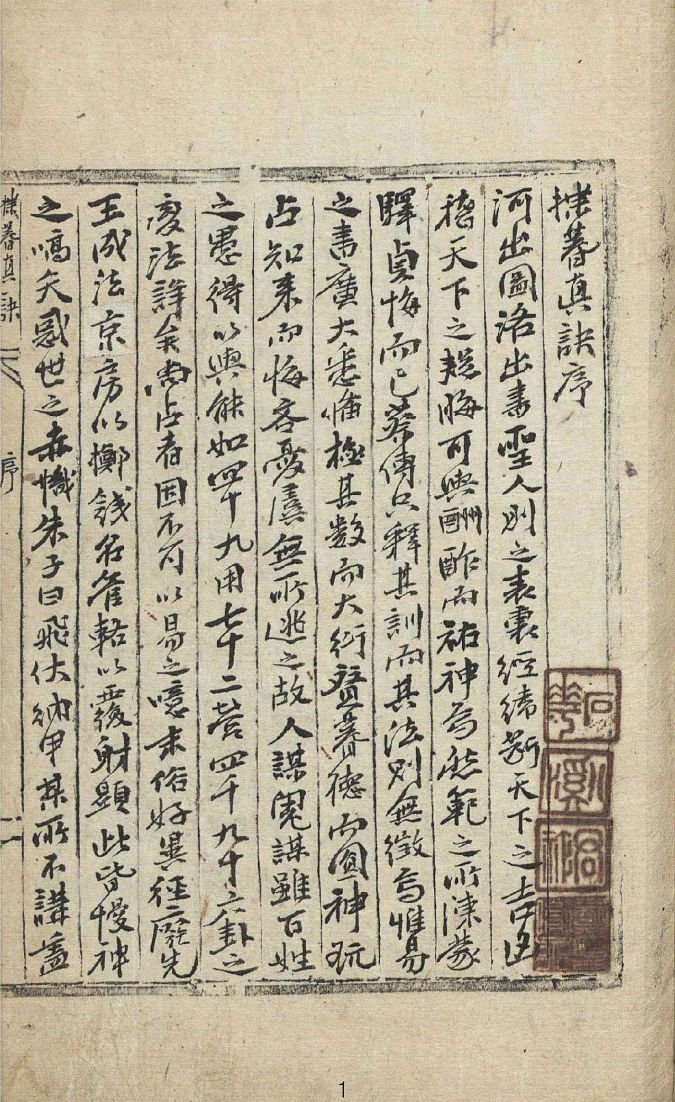 揲蓍真訣序
河出圖洛出書聖人則之表裏經緯斷天下之吉凶
德天下之趍悔可與酬酢而祐神焉然範之所陳蒙
驛貞悔而已蔡傳只釋其訓而其法則無徵焉惟易
之書廣大悉備極其数而大衍盡蓍德而圓神玩
占知来而悔吝憂虞無所逃之故人謀鬼謀雖百姓
之愚得以與能如四十九用七十二營四千九十六卦之
變法詳矣尚占者固不可以易之噫末俗好異径廢先
王成法京房以擲錢名管輅以覆射顯此皆慢神
之嚆矢惑世之赤幟朱子曰飛伏納甲某所不講盖
揲蓍真訣
序
一
1